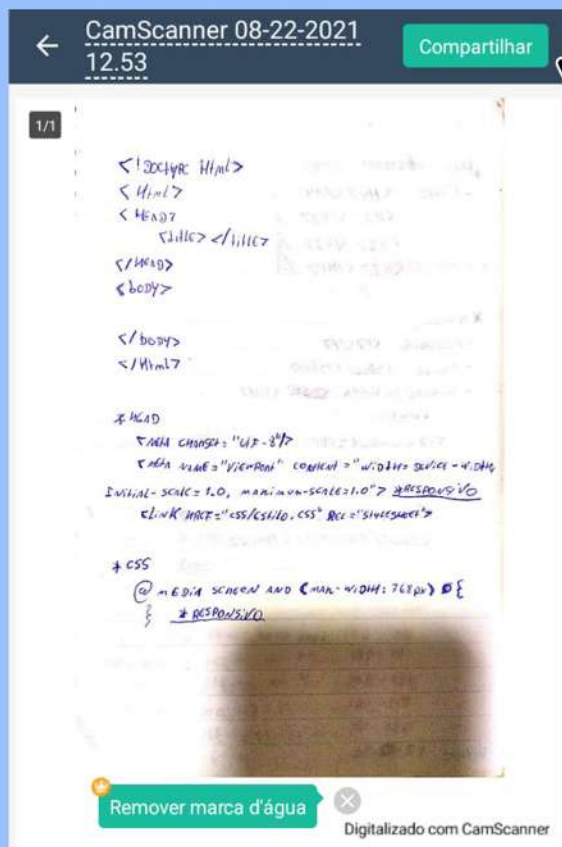 CamScanner 08-22-2021
12.53
Compartilhar
1/1
<!DOCTYPE Html>
<Html>
<HEAD>
<title></title>
</HEAD>
<body>
</body>
</Html>
* HEAD
<meta CHARSET="UTF-8"/>
<meta NAME="VIEWPORT" CONTENT="WIDTH=DEVICE-WIDTH,
INITIAL-SCALE=1.0, maximum-scale=1.0"> *RESPONSIVO
<LINK HREF="CSS/Estilo.CSS" REL="STYLESHEET">
* CSS
@MEDIA SCREEN AND (MAX-WIDTH:768px) {
} *RESPONSIVO
Remover marca d'água
Digitalizado com CamScanner